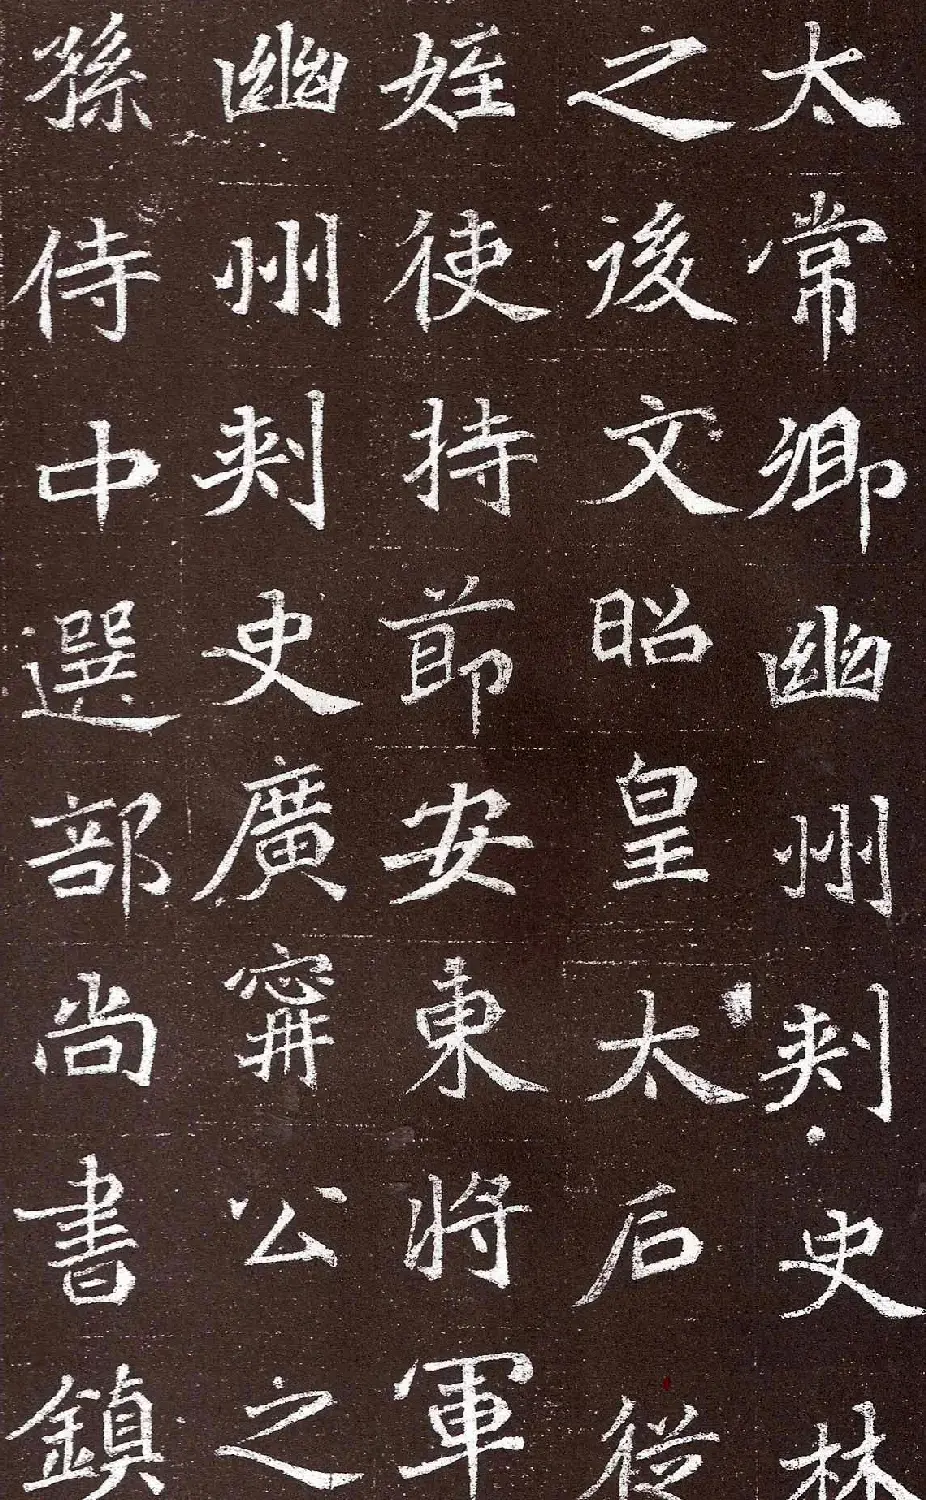 太常卿幽州刺史林
之後文昭皇太后從
姪使持節安東將軍
幽州刺史廣寧公之
孫侍中選部尚書鎮